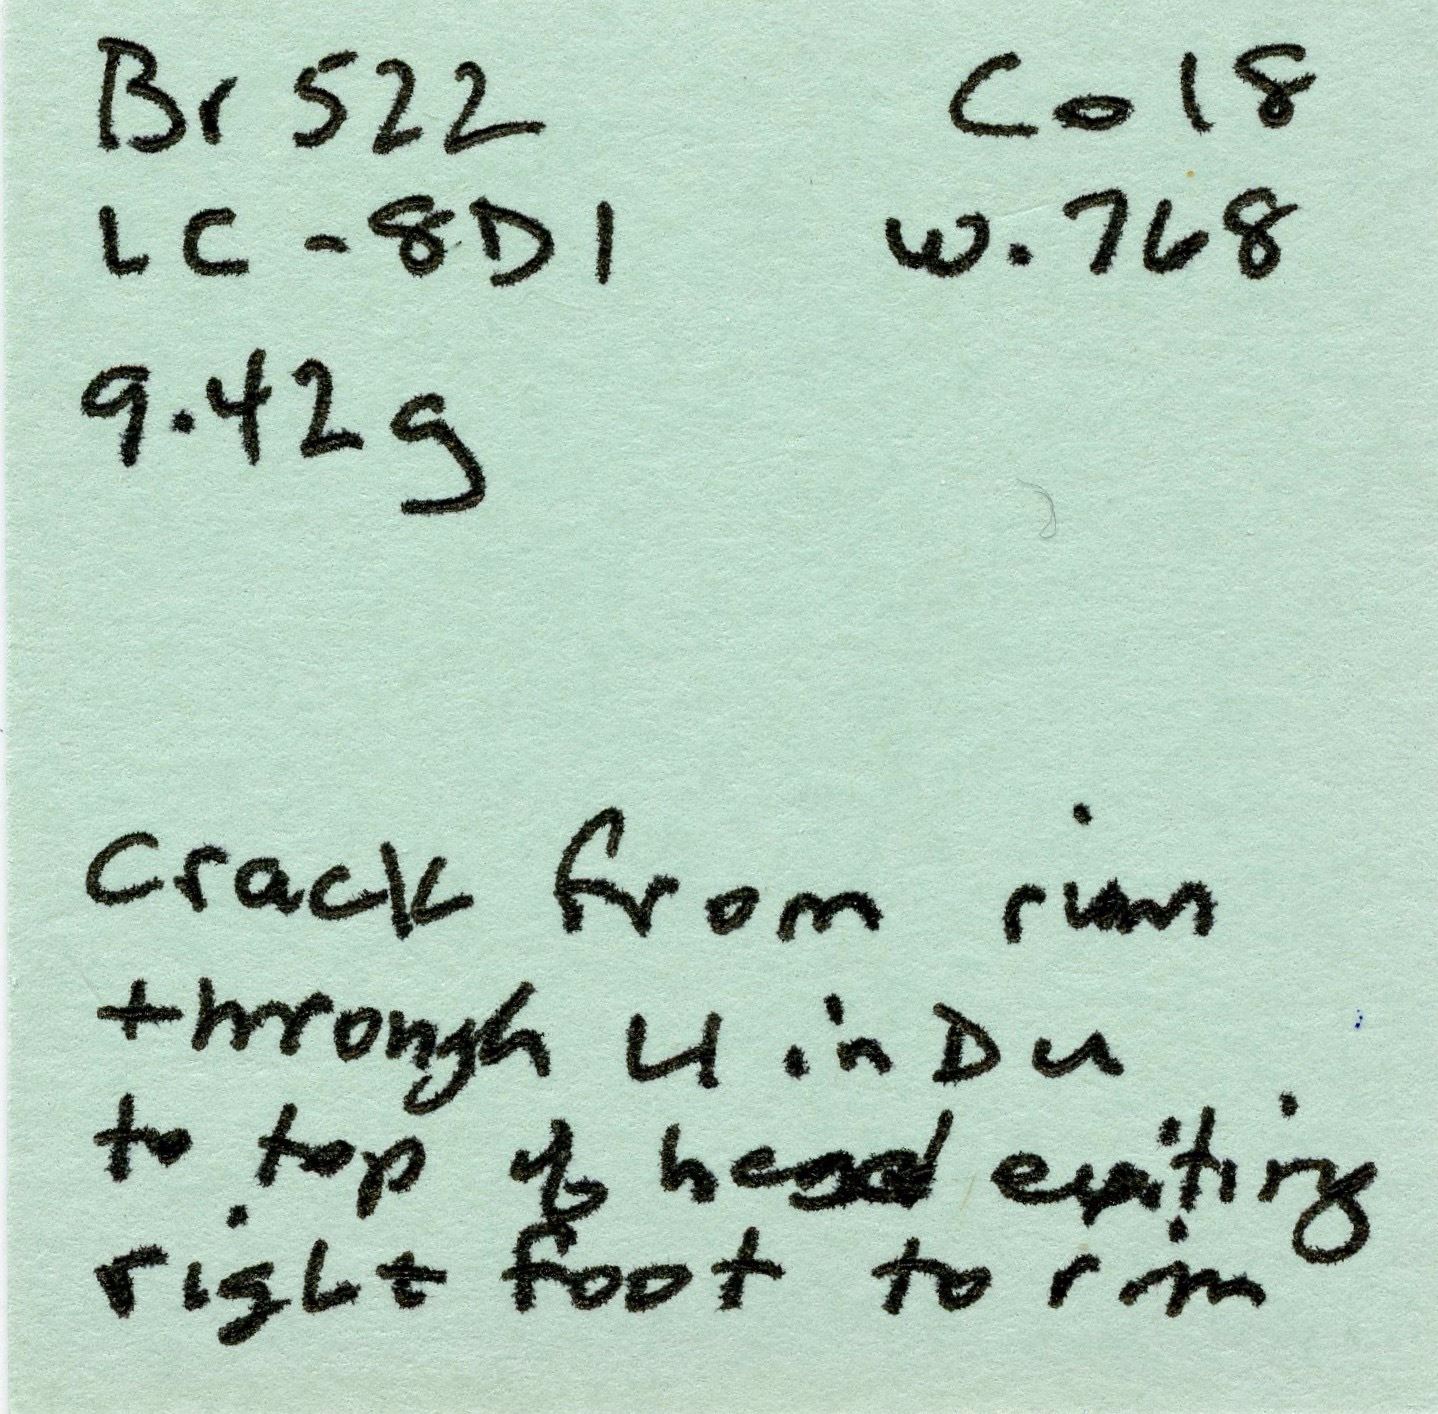 Br 522 Co 18
LC-8D1 W.768
9.42g
Crack from rim
through U in Du
to top of head exiting
right foot to rim